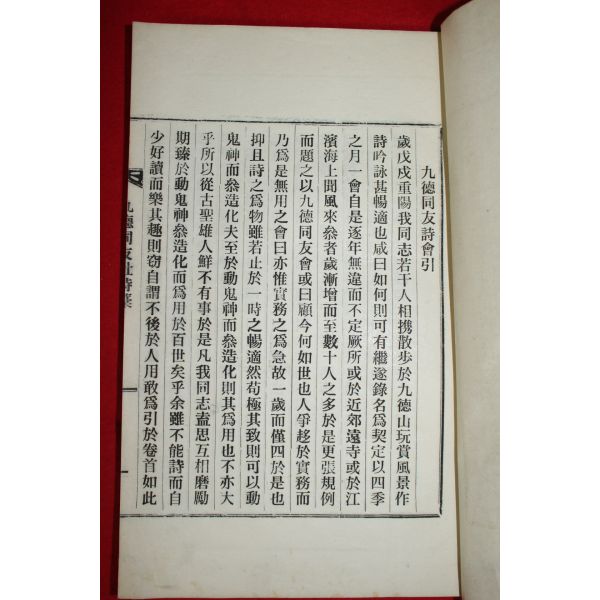 九德同友詩會引
歲戊戌重陽我同志若干人相携散步於九德山玩賞風景作
詩吟詠甚暢適也咸曰如何則可有繼遂錄名爲契定以四季
之月一會自是逐年無違而不定厥所或於近郊遠寺或於江
濱海上聞風來叅者歲漸增而至數十人之多於是更張規例
而題之以九德同友會或曰顧今何如世也人爭趍於實務而
乃爲是無用之會曰亦惟實務之爲急故一歲而僅四於是也
抑且詩之爲物雖若止於一時之暢適然苟極其致則可以動
鬼神而叅造化夫至於動鬼神而叅造化則其爲用也不亦大
乎所以從古聖雄人鮮不有事於是凡我同志盍思互相磨勵
期臻於動鬼神叅造化而爲用於百世矣乎余雖不能詩而自
少好讀而樂其趣則窃自謂不後於人用敢爲引於卷首如此
九德同友社詩藁